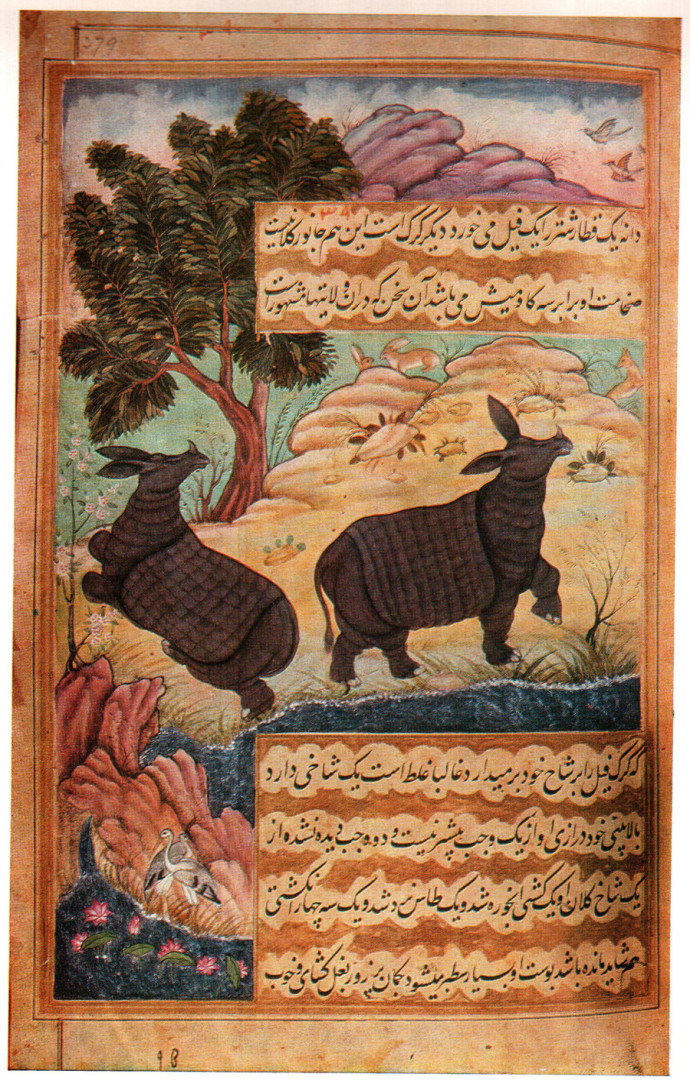 379
۳۹
دانه یک قطار شتر را یک فیل می خورد دیگر کرک است این هم جانور کلانیست
ضخامت او برابر سه کاومیش می باشد آن سخن که در ان ولایتها مشهور است
که کرک فیل را بر شاخ خود برمیدارد غالبا غلط است یک شاخی دارد
بالا بینی خود درازی او از یک وجب بیشتر نیست دو وجب دیده نشده از
یک شاخ کلان او یک کشتی ابخوره شد و یک طاس نرد شد و یک سه چهار انکشتی
هم شاید مانده باشد پوست او بسیار سطبر میشود کمان پر زور بغل کشای و خوب
9B